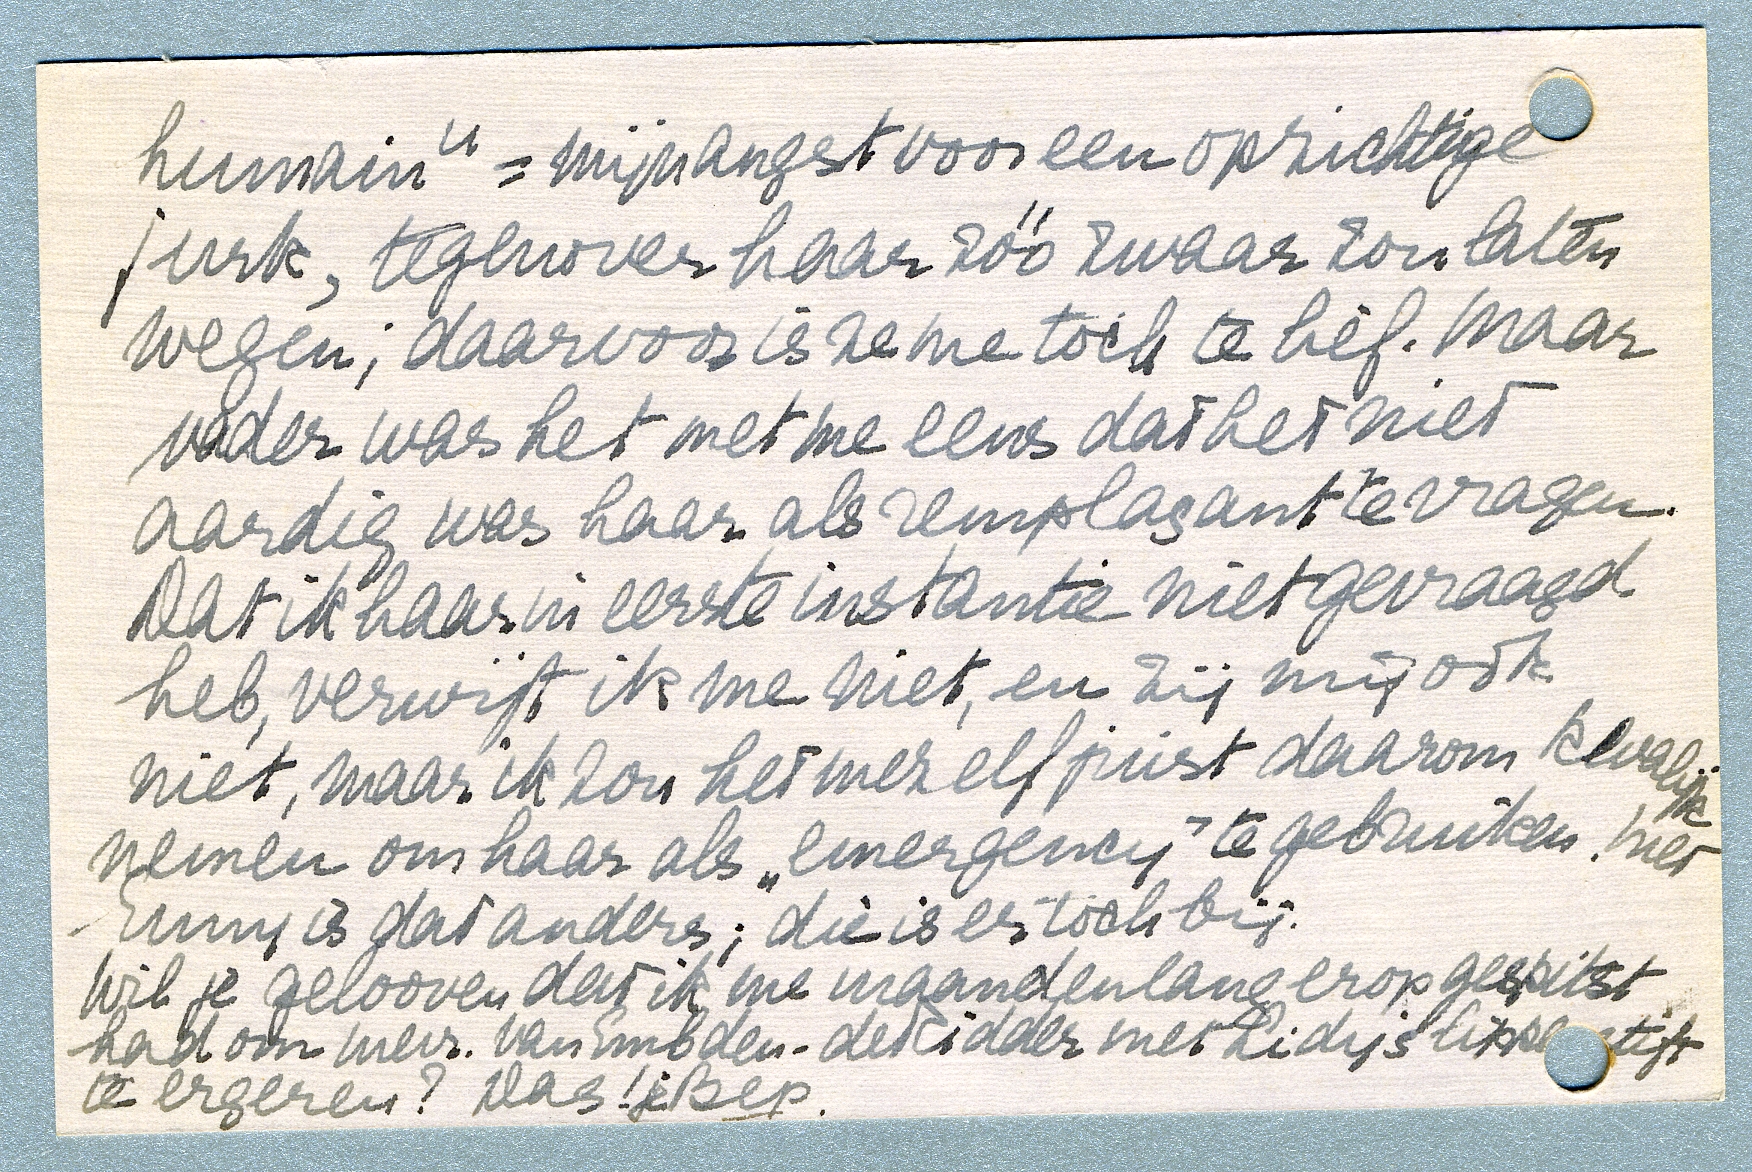 humain" = mijn angst voor een oprichtige
jurk, tegenover haar zóó zwaar zou laten
wegen; daarvoor is ze me toch te lief. Maar
vader was het met me eens dat het niet
aardig was haar als remplaçant te vragen.
Dat ik haar in eerste instantie niet gevraagd
heb, verwijt ik me niet, en zij mij ook
niet, maar ik zou het mezelf juist daarom kwalijk
nemen om haar als „emergency" te gebruiken. Met
Emmy is dat anders; die is er toch bij.
Wil je gelooven dat ik me maandenlang erop gespitst
had om mevr. van Embden-de Ridder met Lidy's lippenstift
te ergeren? Dag! je Bep.